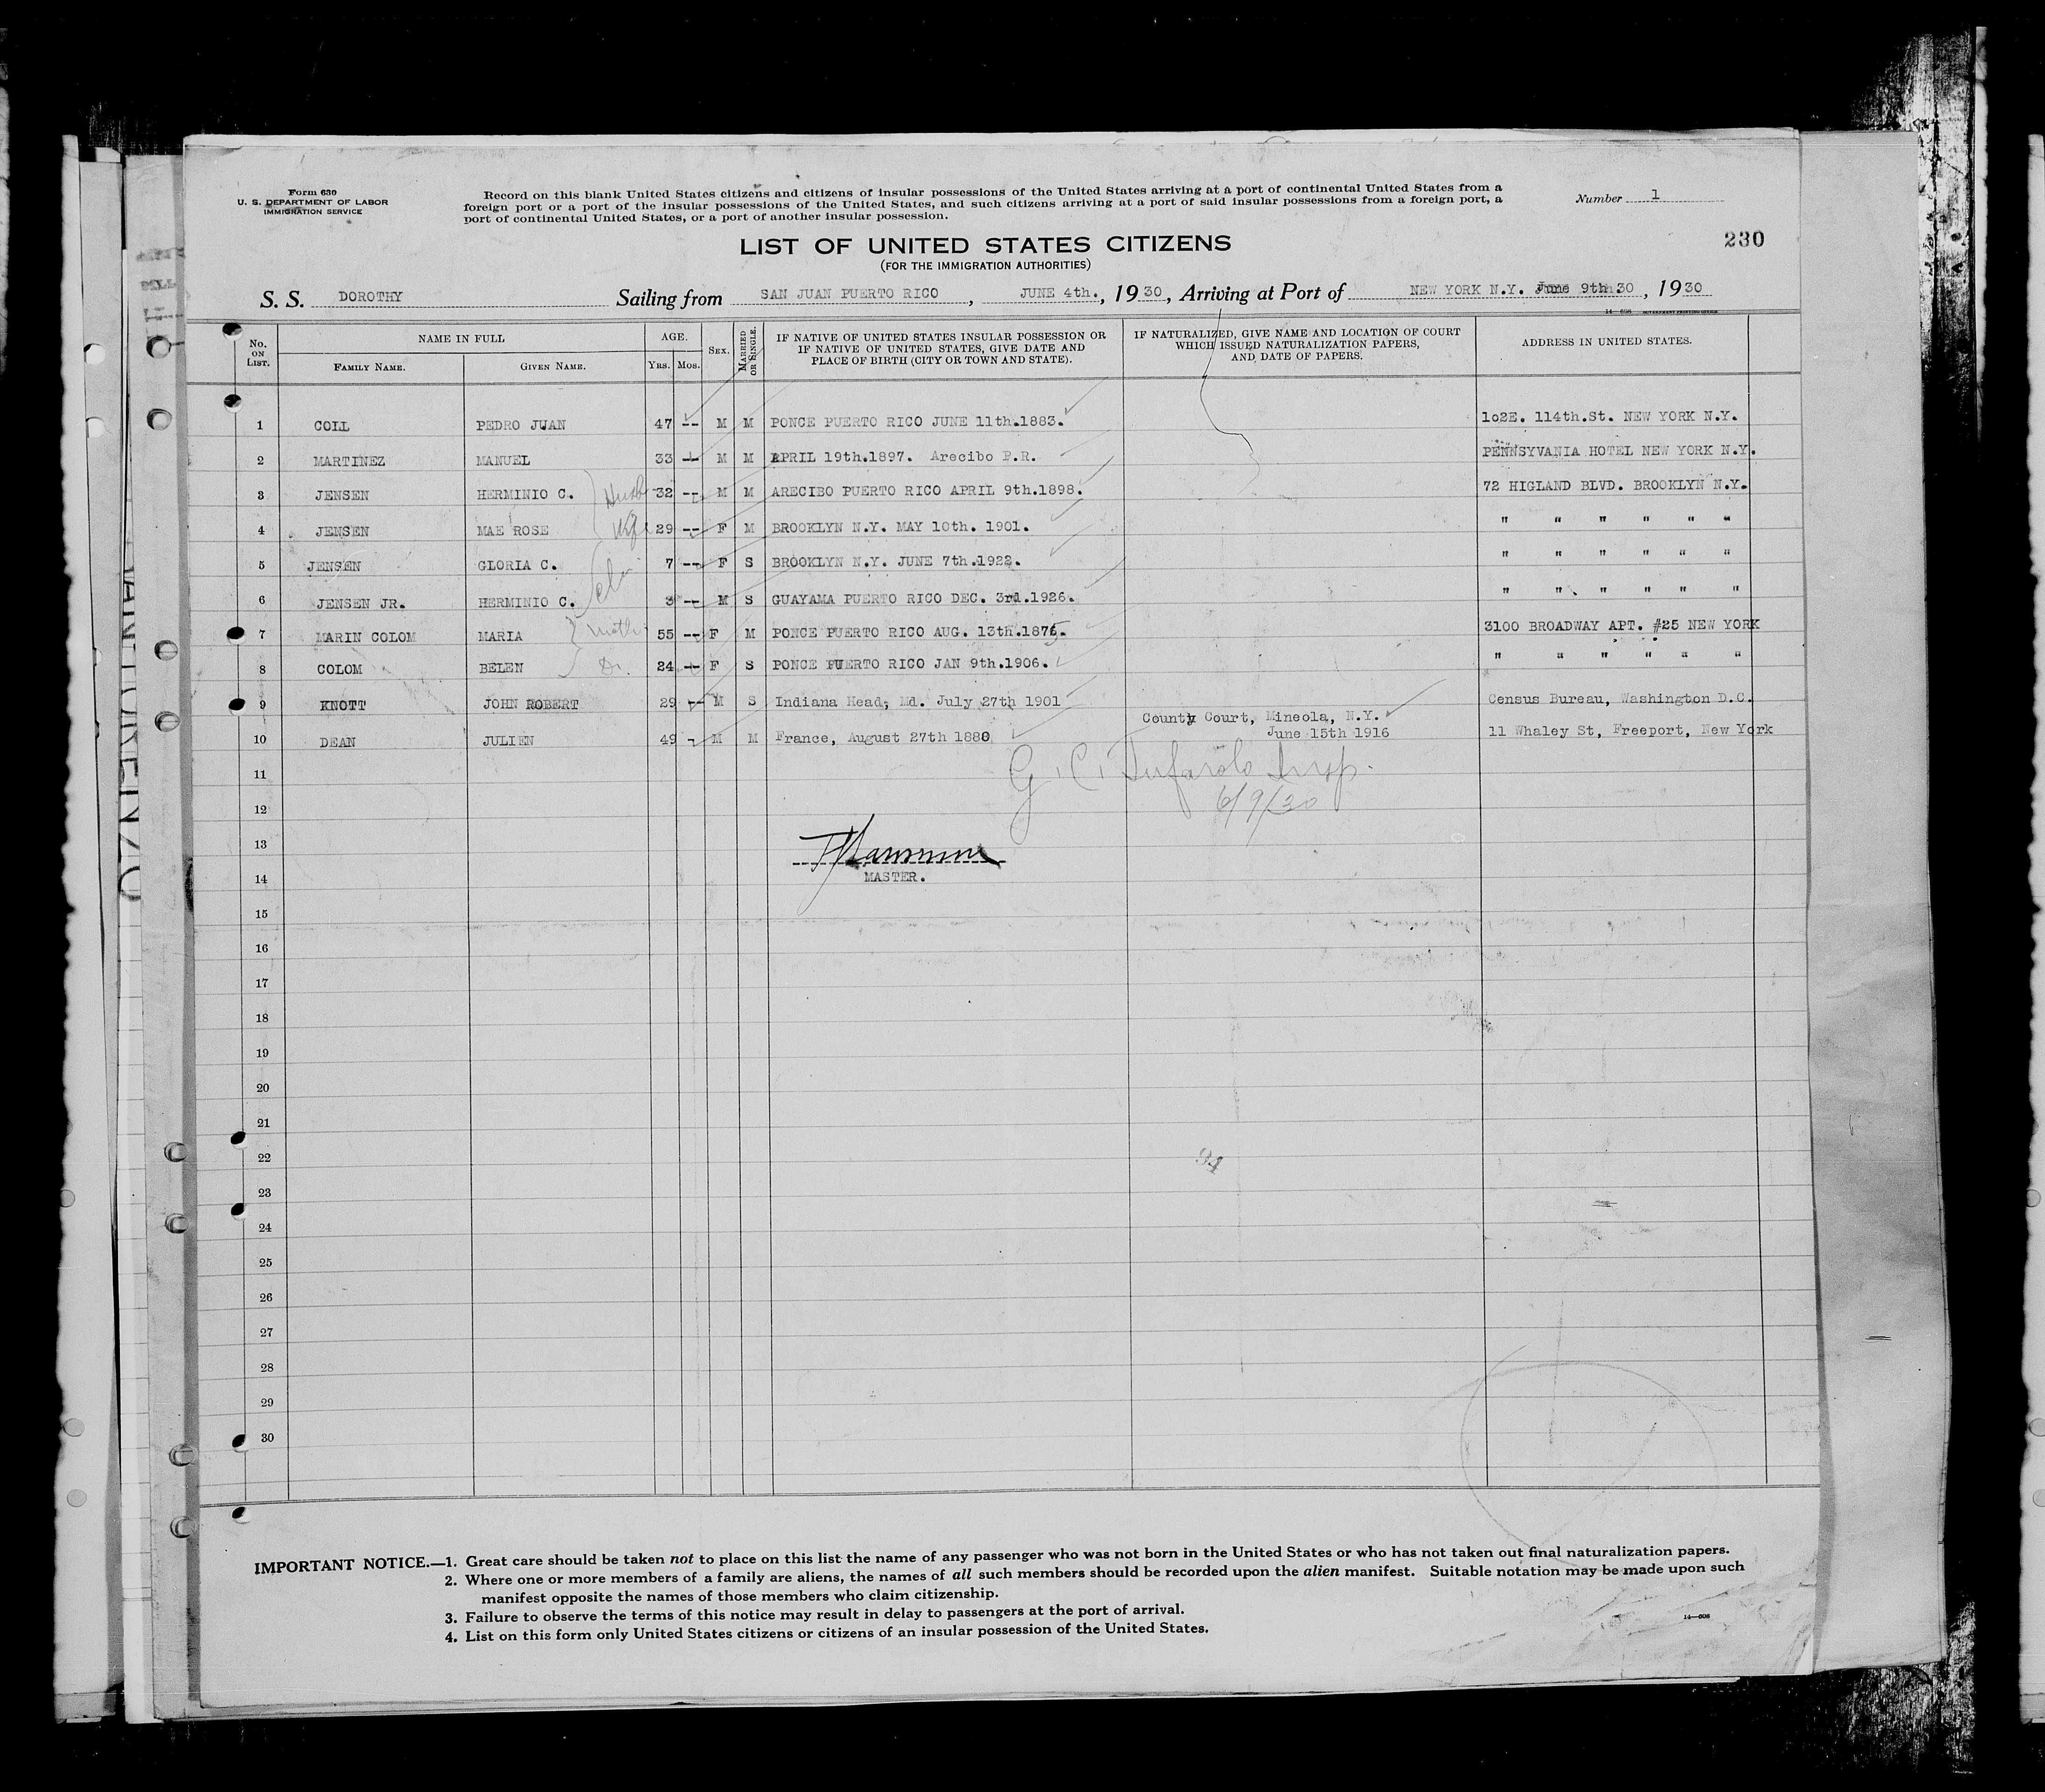 Form 630
U. S. DEPARTMENT OF LABOR
IMMIGRATION SERVICE
Record on this blank United States citizens and citizens of insular possessions of the United States arriving at a port of continental United States from a
foreign port or a port of the insular possessions of the United States, and such citizens arriving at a port of said insular possessions from a foreign port, a
port of continental United States, or a port of another insular possession.
Number 1
230
LIST OF UNITED STATES CITIZENS
(FOR THE IMMIGRATION AUTHORITIES)
S. S. DOROTHY Sailing from SAN JUAN PUERTO RICO, JUNE 4th., 1930, Arriving at Port of NEW YORK N.Y. June 9th.30, 1930
No. ON LIST. NAME IN FULL FAMILY NAME. GIVEN NAME. AGE. YRS. MOS. SEX. MARRIED OR SINGLE.
IF NATIVE OF UNITED STATES INSULAR POSSESSION OR
IF NATIVE OF UNITED STATES, GIVE DATE AND
PLACE OF BIRTH (CITY OR TOWN AND STATE).
IF NATURALIZED, GIVE NAME AND LOCATION OF COURT
WHICH ISSUED NATURALIZATION PAPERS,
AND DATE OF PAPERS.
ADDRESS IN UNITED STATES.
1 COLL PEDRO JUAN 47 -- M M PONCE PUERTO RICO JUNE 11th.1883. 1o2E. 114th.St. NEW YORK N.Y.
2 MARTINEZ MANUEL 33 -- M M APRIL 19th.1897. Arecibo P.R. PENNSYVANIA HOTEL NEW YORK N.Y.
3 JENSEN HERMINIO C. Husb 32 -- M M ARECIBO PUERTO RICO APRIL 9th.1898. 72 HIGLAND BLVD. BROOKLYN N.Y.
4 JENSEN MAE ROSE Wife 29 -- F M BROOKLYN N.Y. MAY 10th. 1901. " " " " " "
5 JENSEN GLORIA C. 7 -- F S BROOKLYN N.Y. JUNE 7th.1922. " " " " " "
6 JENSEN JR. HERMINIO C. 3 -- M S GUAYAMA PUERTO RICO DEC. 3rd.1926. " " " " " "
7 MARIN COLOM MARIA Moth 55 -- F M PONCE PUERTO RICO AUG. 13th.1875. 3100 BROADWAY APT. #25 NEW YORK
8 COLOM BELEN 24 -- F S PONCE PUERTO RICO JAN 9th.1906. " " " " " "
9 KNOTT JOHN ROBERT 29 -- M S Indiana Head, Md. July 27th 1901 Census Bureau, Washington D.C.
10 DEAN JULIEN 49 - M M France, August 27th 1880 County Court, Mineola, N.Y. 11 Whaley St, Freeport, New York
June 15th 1916
11
12
6/9/30
13
14
MASTER.
15
16
17
18
19
20
21
22
94
23
24
25
26
27
28
29
30
IMPORTANT NOTICE.—1. Great care should be taken not to place on this list the name of any passenger who was not born in the United States or who has not taken out final naturalization papers.
2. Where one or more members of a family are aliens, the names of all such members should be recorded upon the alien manifest. Suitable notation may be made upon such
manifest opposite the names of those members who claim citizenship.
3. Failure to observe the terms of this notice may result in delay to passengers at the port of arrival.
4. List on this form only United States citizens or citizens of an insular possession of the United States.